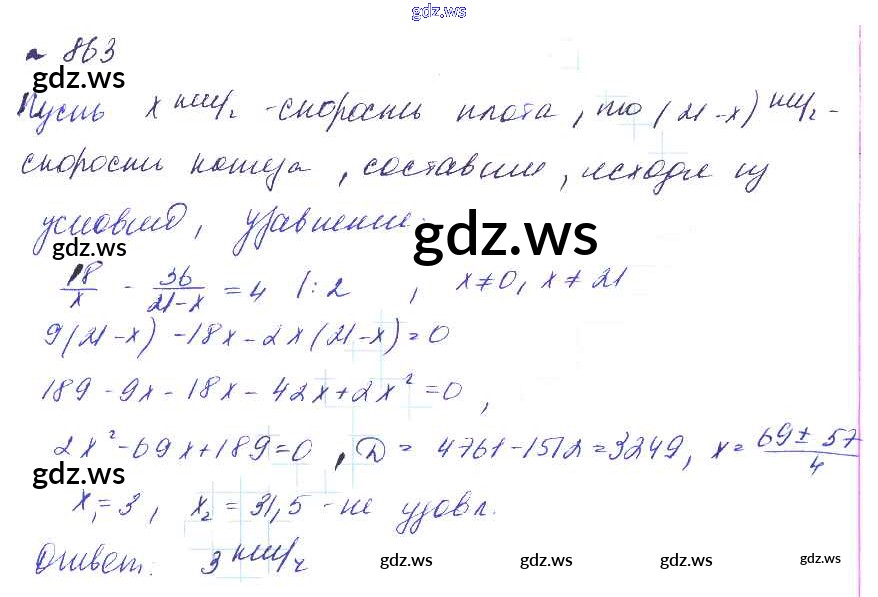 gdz.ws
№ 863
gdz.ws
Пусть x км/ч - скорость плота, то (21-x) км/ч -
скорость катера, составим, исходя из
условия, уравнение:
gdz.ws
gdz.ws
18/x - 36/(21-x) = 4 |:2 , x≠0, x≠21
9(21-x) - 18x - 2x(21-x) = 0
189 - 9x - 18x - 42x + 2x² = 0,
2x² - 69x + 189 = 0, D = 4761 - 1512 = 3249, x = (69 ± 57)/4
gdz.ws
x₁ = 3, x₂ = 31,5 - не удовл.
Ответ: 3 км/ч
gdz.ws gdz.ws gdz.ws gdz.ws